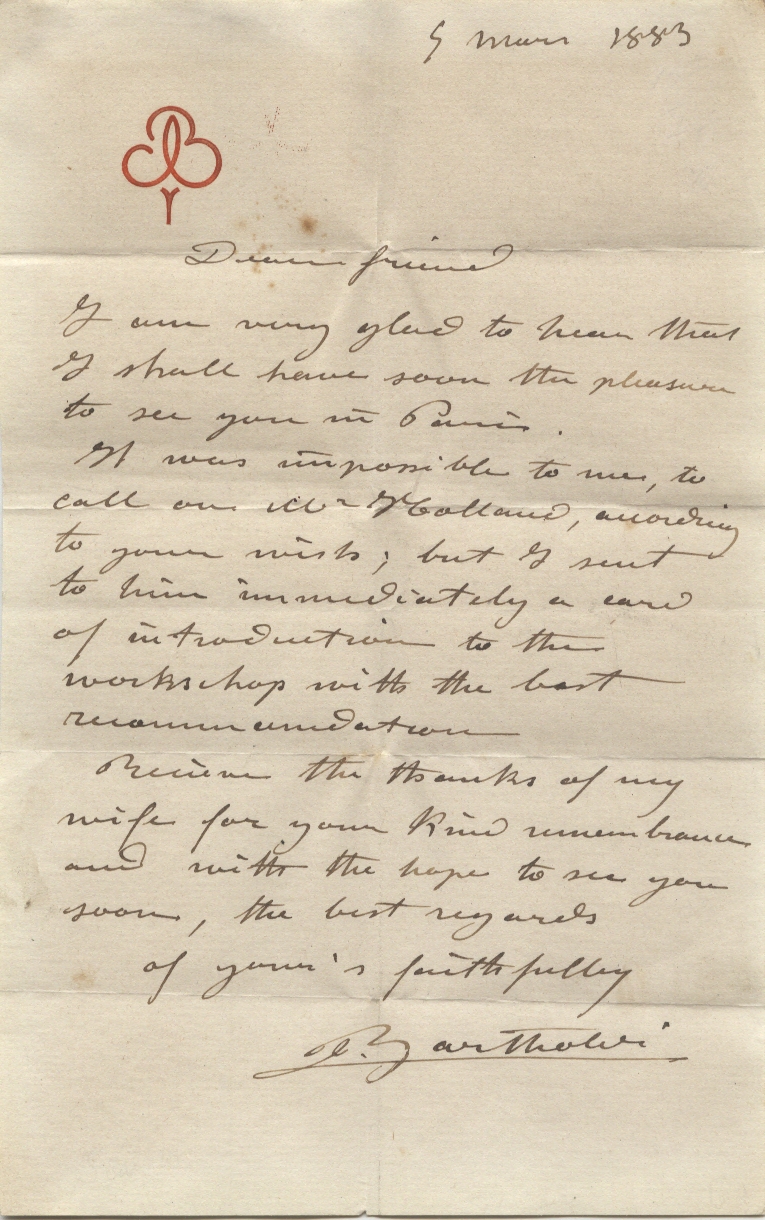 5 Mars 1883
Dear friend
I am very glad to hear that
I shall have soon the pleasure
to see you in Paris.
It was impossible to me, to
call on Mr Holland, acording
to your wish; but I sent
to him immediately a card
of introduction to the
workschop with the best
recommandation
Recieve the thanks of my
wife for your kind remembrance
and with the hope to see you
soon, the best regards
of your's faithfulley
A. Bartholdi